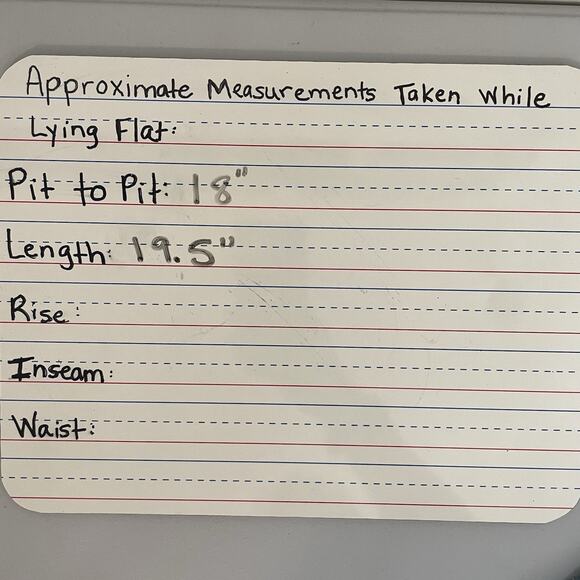 Approximate Measurements Taken While
Lying Flat:
Pit to Pit: 18"
Length: 19.5"
Rise:
Inseam:
Waist: